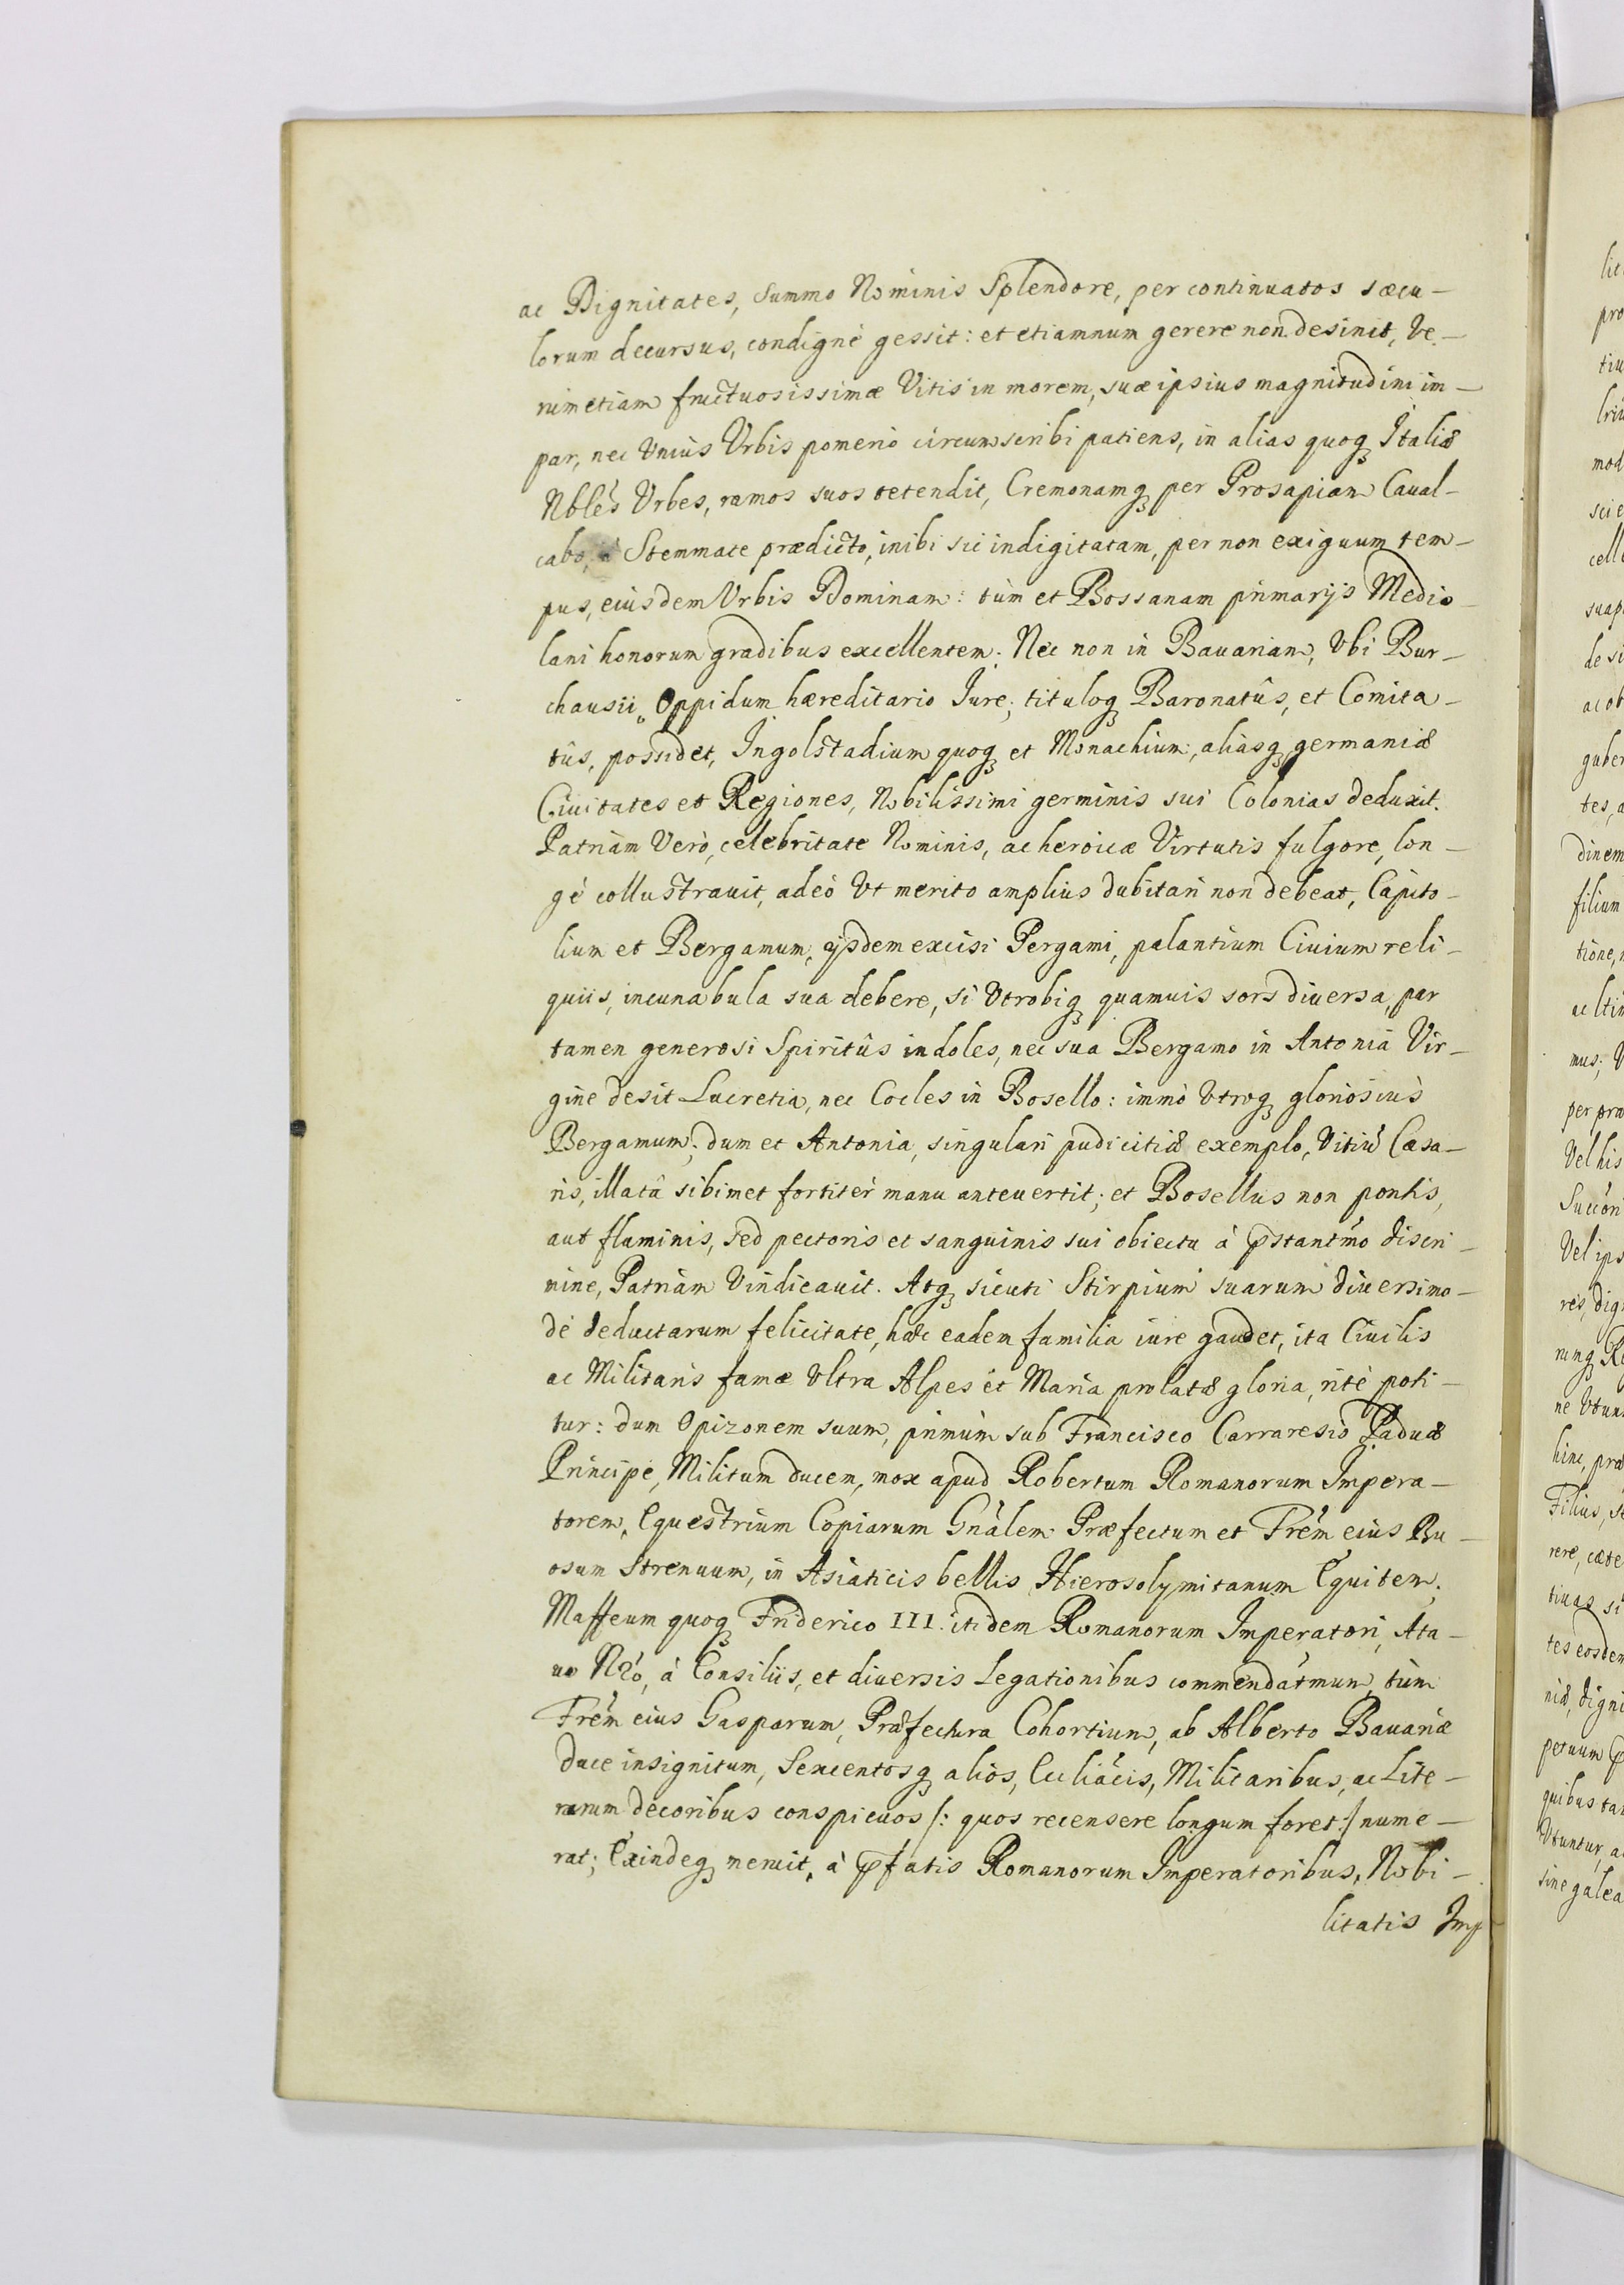 ac Dignitates, summo Nominis Splendore, per continuatos sæcu-
lorum decursus, condignè gessit: et etiamnum gerere non desinit, Ve-
rum etiam fructuosissimæ Vitis in morem, suæ ipsius magnitudini im-
par, nec Vnius Vrbis pomerio circumscribi patiens, in alias quoq Italiæ
Nblés Vrbes, ramos suos tetendit, Cremonamq per Prosapiam Caual-
cabo, à Stemmate prædicto, inibi sic indigitatam, per non exiguum tem-
pus, eiusdem Vrbis Dominam: tùm et Bossanam primarijs Medio-
lani honorum gradibus excellentem: Nec non in Bauariam, Vbi Bur-
chausii Oppidum hæreditario Iure, tituloq Baronatûs, et Comita-
tûs, possidet, Ingolstadium quoq et Monachium, aliasq germaniæ
Ciuitates et Regiones, Nobilissimi germinis sui Colonias deduxit.
Patriàm Verò, celebritate Nominis, ac heroicæ Virtutis fulgore, lon-
gè collustrauit, adeò Vt merito amplius dubitari non debeat, Capito-
lium et Bergamum, ijsdem excisi Pergami, palantium Ciuium reli-
quiis, incunabula sua debere, si Vtrobiq quamuis sors diuersa, par
tamen generosi Spiritûs indoles, nec sua Bergamo in Antonia Vir-
gine desit Lucretia, nec Cocles in Bosello: immò Vtroq gloriosius
Bergamum; dum et Antonia, singulari pudicitiæ exemplo, Vitiū Cæsa-
ris, illatâ sibimet fortitèr manu anteuertit; et Bosellus non pontis,
aut flaminis, sed pectoris et sanguinis sui obiectu à p̄stantmo discri-
mine, Patriàm Vindicauit. Atq sicuti Stirpium suarum diuersimo-
dè deductarum felicitate, hæc eadem familia iure gaudet, ita Ciuilis
ac Militaris famæ Vltra Alpes et Maria prolatæ gloria, ritè poti-
tur: dum Opizonem suum, primùm sub Francisco Carraresio Paduæ
Principe, Militum ducem, mox apud Robertum Romanorum Impera-
torem, Equestrium Copiarum Gnàlem Præfectum et Frém eius Bu-
osum strenuum, in Asiaticis bellis Hierosolymitanum Equitem.
Maffeum quoq Friderico III. itidem Romanorum Imperatori, Ata-
uo Nró, à Consiliis, et diuersis Legationibus commendátmum, tùm
Frém eius Gasparum, Præfectura Cohortium, ab Alberto Bauariæ
duce insignitum, Sexcentosq alios, Eccliácis, Militaribus, ac Lite-
rarum decoribus conspicuos /: quos recensere longum foret :/ nume-
rat; Exindeq meruit, à p̄fatis Romanorum Imperatoribus, Nobi-
litatis Imp